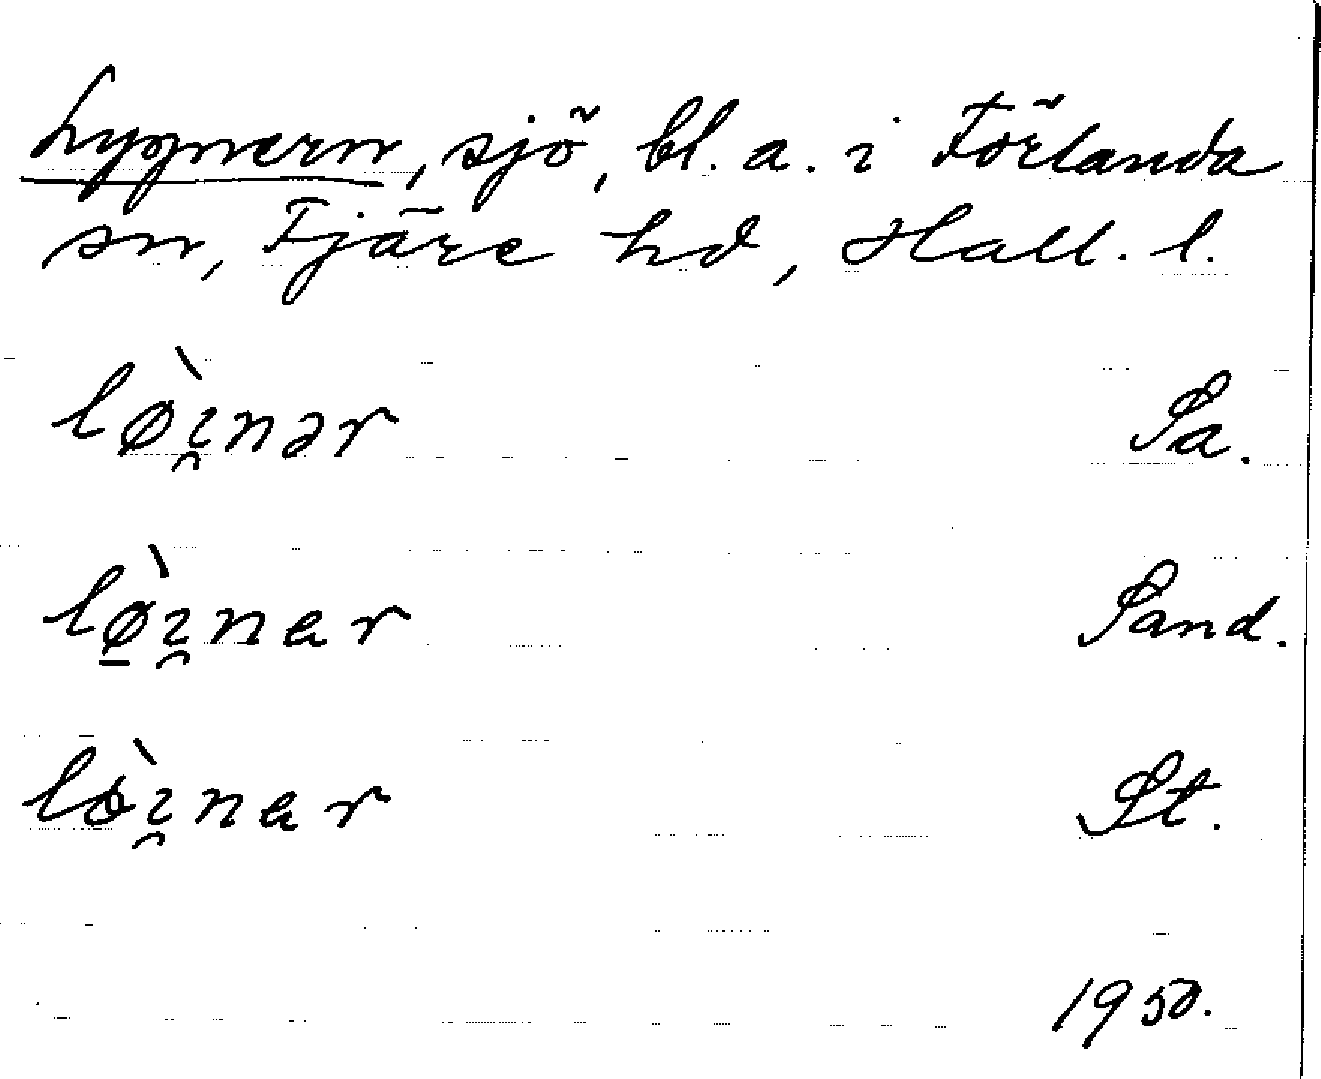 Lygnern, sjö, bl. a. i Förlanda
sn, Fjäre hd, Hall. l.
lø̀ı̯nər Sa.
lø̠̀ı̯nar Sand.
lø̀ı̯nar St.
1950.